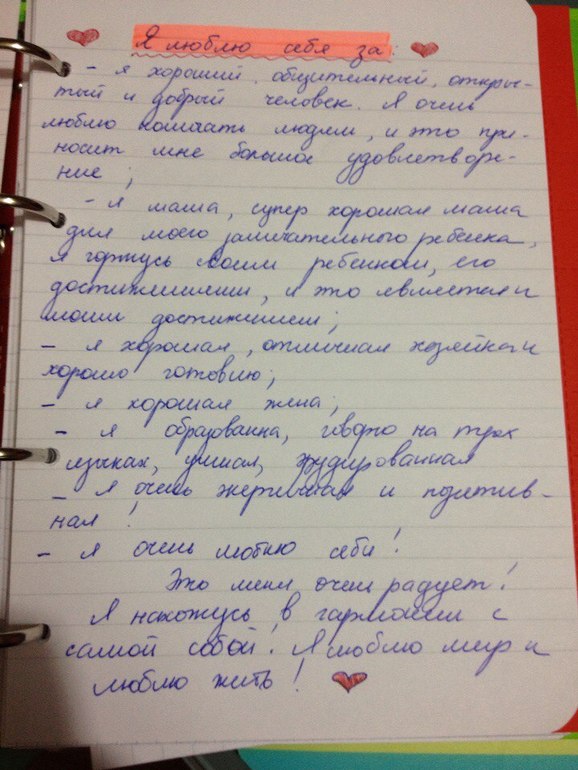 Я люблю себя за:
- я хороший, общительный, откры-
тый и добрый человек. Я очень
люблю помогать людям, и это при-
носит мне большое удовлетворе-
ние;
- Я мама, супер хорошая мама
для моего замечательного ребенка,
я горжусь своим ребенком, его
достижениями, и это является и
моим достижением;
- я хорошая, отличная хозяйка и
хорошо готовлю;
- я хорошая жена;
- я образованна, говорю на трех
языках, умная, эрудированная
- Я очень и позитив-
ная!
- Я очень люблю себя!
Это меня очень радует!
Я нахожусь в гармонии с
самой собой! Я люблю мир и
люблю жить!